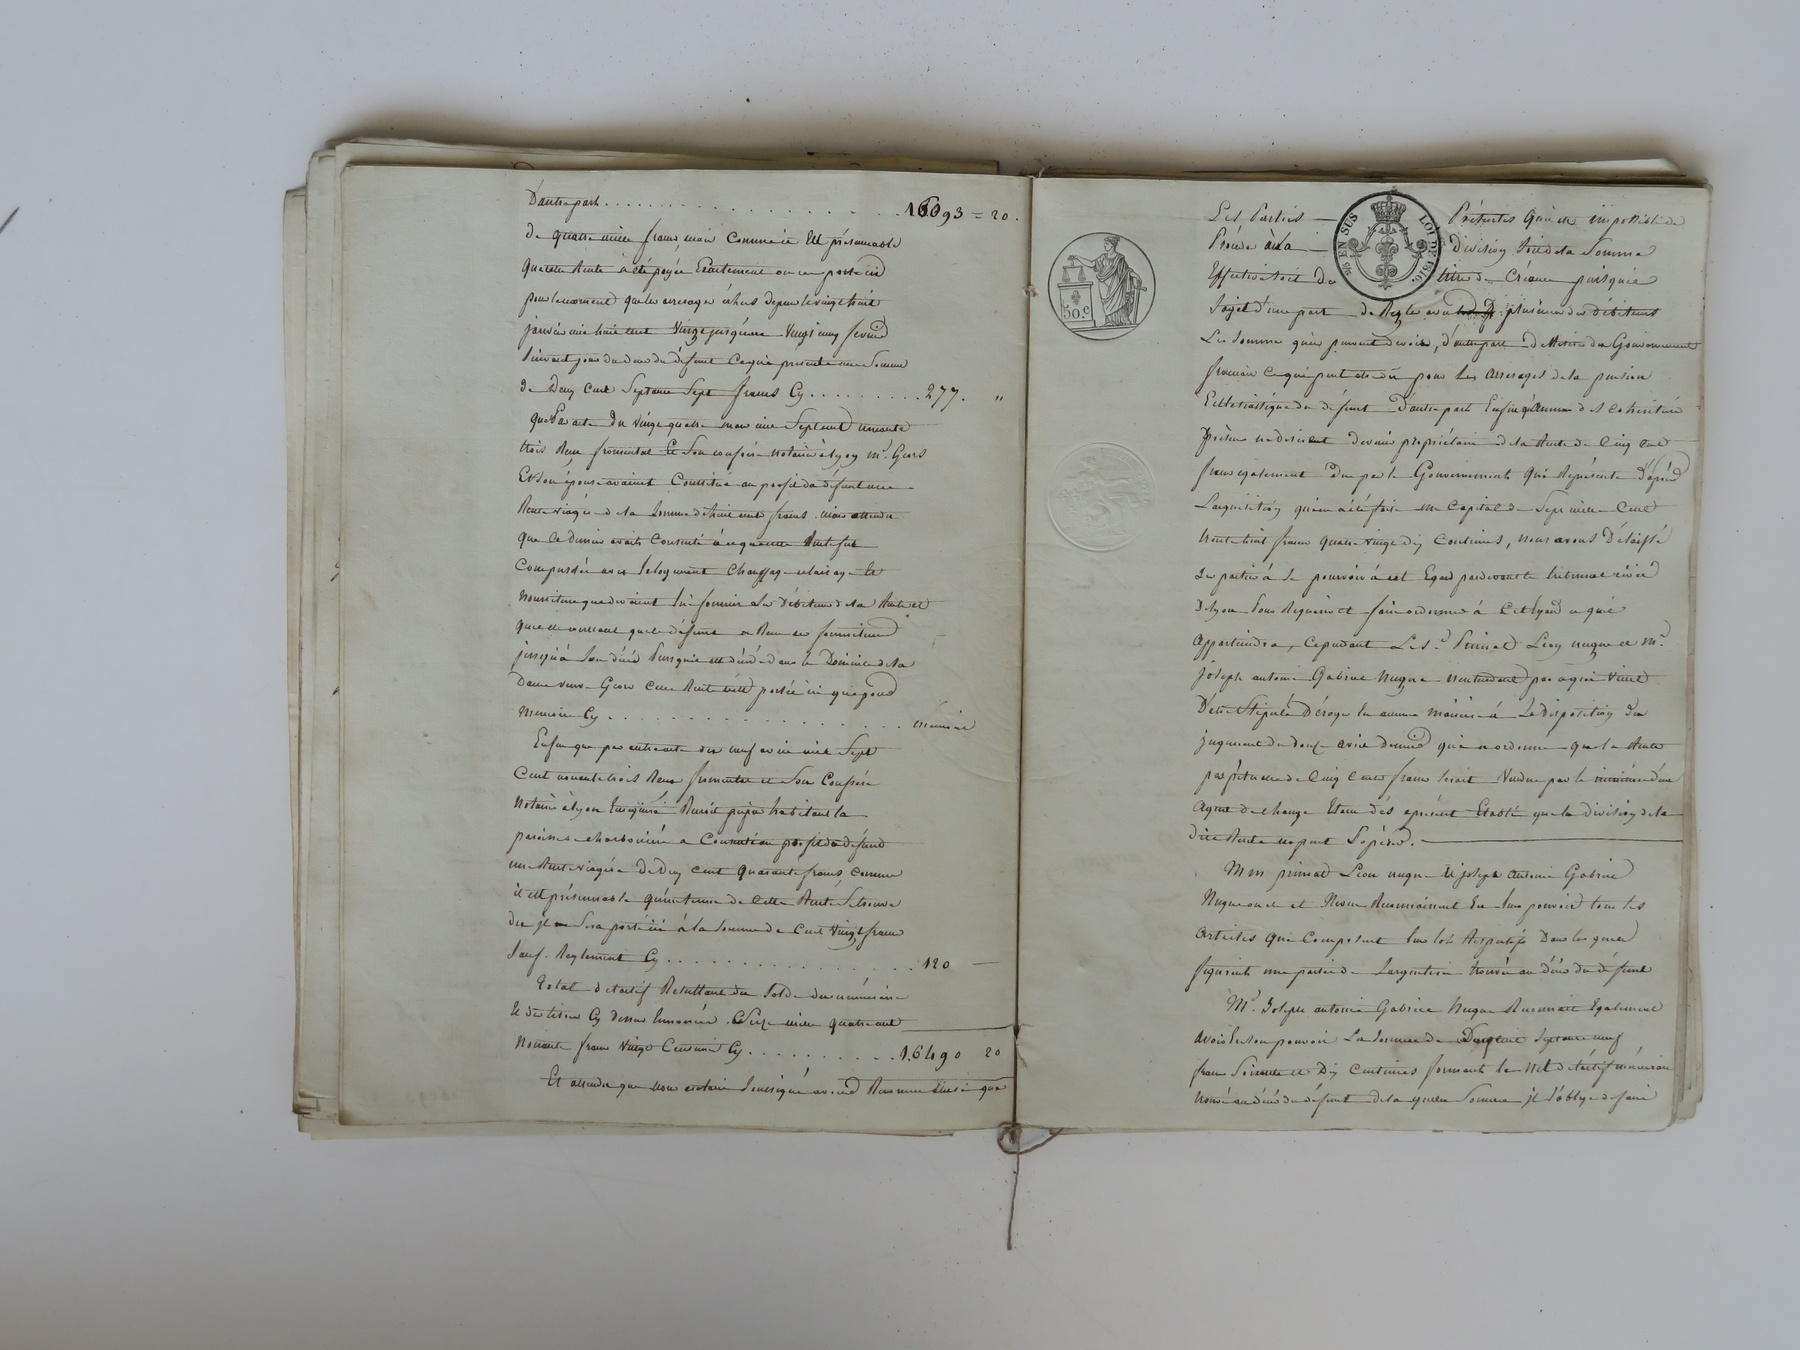 D'autre part . . . . . . . . . . . . . . 16093 = 20.
de quatre mille francs mais comme il est présumable
que cette Rente a été payée Exactement on ne porte ici
pour le moment que les arrerages échus depuis le vingt huit
janvier mil huit cent vingt jusqu'au vingt cinq fevrier
suivant jour du deces du défunt ce qui présente une Somme
de Deux Cent Septante Sept francs Cy . . . . . . . . . 277. "
Que Par acte du vingt quatre mai mil Sept cent nonante
trois Reçu fromental et Son confrère notaires à lyon Mr. Geors
Et Son épouse avaient Constitué au profit du défunt une
Rente viagère de la Somme de huit cent francs mais attendu
que Ce dernier avait Consenti à ce que cette Rente fut
Compensée avec le logement Chauffage eclairage et
nourriture que devaient lui fournir les Débiteurs de la Rente et
que le défunt a Reçu ces fournitures
jusqu'à Son décès Puisqu'il est décédé dans le Domicile de la
Dame veuve Geors Cette Rente n'est portée ici que pour
memoire Cy . . . . . . . . . . . . . . . . . . memoire
Enfin que par autre acte du neuf avril mil Sept
Cent nonante trois Reçu fromental et Son Confrère
Notaires à lyon Benoit habitant la
paroisse a Constitué au profit du défunt
une Rente viagère de Deux cent quarante francs, comme
il est présumable qu'un terme de Cette Rente Se trouve
du il Sera porté ici à la Somme de Cent Vingt francs
Sauf Reglement Cy . . . . . . . . . . . . . . . 120 —
Total de l'actif Resultant du Solde du numéraire
Et des titres Cy dessus énoncés Seize mille quatre cent
Nonante francs Vingt Centimes Cy . . . . . . . . . . 16490 20
Et attendu que nous notaire Soussigné avons Reconnu que
Les Parties — Présentes Qu'il est impossible de
Procéder à la — Division Soit de la Somme
Effective soit des titres de Créance puisqu'il
S'agit d'une part de Regler avec plusieurs des débiteurs
Les Sommes qu'ils peuvent devoir, d'autre part de du Gouvernement
francais ce qui peut etre dû pour les arrerages de la pension
Ecclesiastique du défunt D'autre part Enfin qu'aucun des cohéritiers
présens ne désirent devenir propriétaire de la Rente de Cinq cent
francs également due par le Gouvernement Qui Représente D'après
L'acquisition qui en a été faite un Capital de Sept mille Cent
trente huit francs quatre vingt dix Centimes, nous avons Délaissé
Les parties à Se pourvoir à cet Egard pardevant le tribunal civil
De lyon Pour Requerir et faire ordonner à Cet Egard ce qu'il
Appartiendra, Cependant Le Sr. Primat Léon nugue et Mr.
Joseph antoine Gabriel Nugue n'entendent pas à que vient
D'etre Stipulé Déroger en aucune manière à La Disposition du
jugement du douze avril dernier qui a ordonné que la Rente
perpetuelle de Cinq Cents francs Serait Vendue par le ministère d'un
Agent de change Etant dès aprésent Etabli que la division de la
dite Rente ne peut S'opérer. —
Mrs primat Léon nugue et joseph Antoine Gabriel
Nugue oncle et Neveu Reconnaissent En leur pouvoir tous les
Articles Qui Composent leurs lots Respectifs Dans les quels
figurent une partie de L'argenterie trouvée au décès du défunt
Mr. Joseph antoine Gabriel Nugue Reconnait Egalement
Avoir en Son pouvoir La Somme de Septante neuf
francs Soixante et Dix Centimes formant le Net de l'actif numéraire
trouvé au décès du défunt de la quelle Somme il S'oblige de faire
50.c
5/10 EN SUS LOI DE 1816.